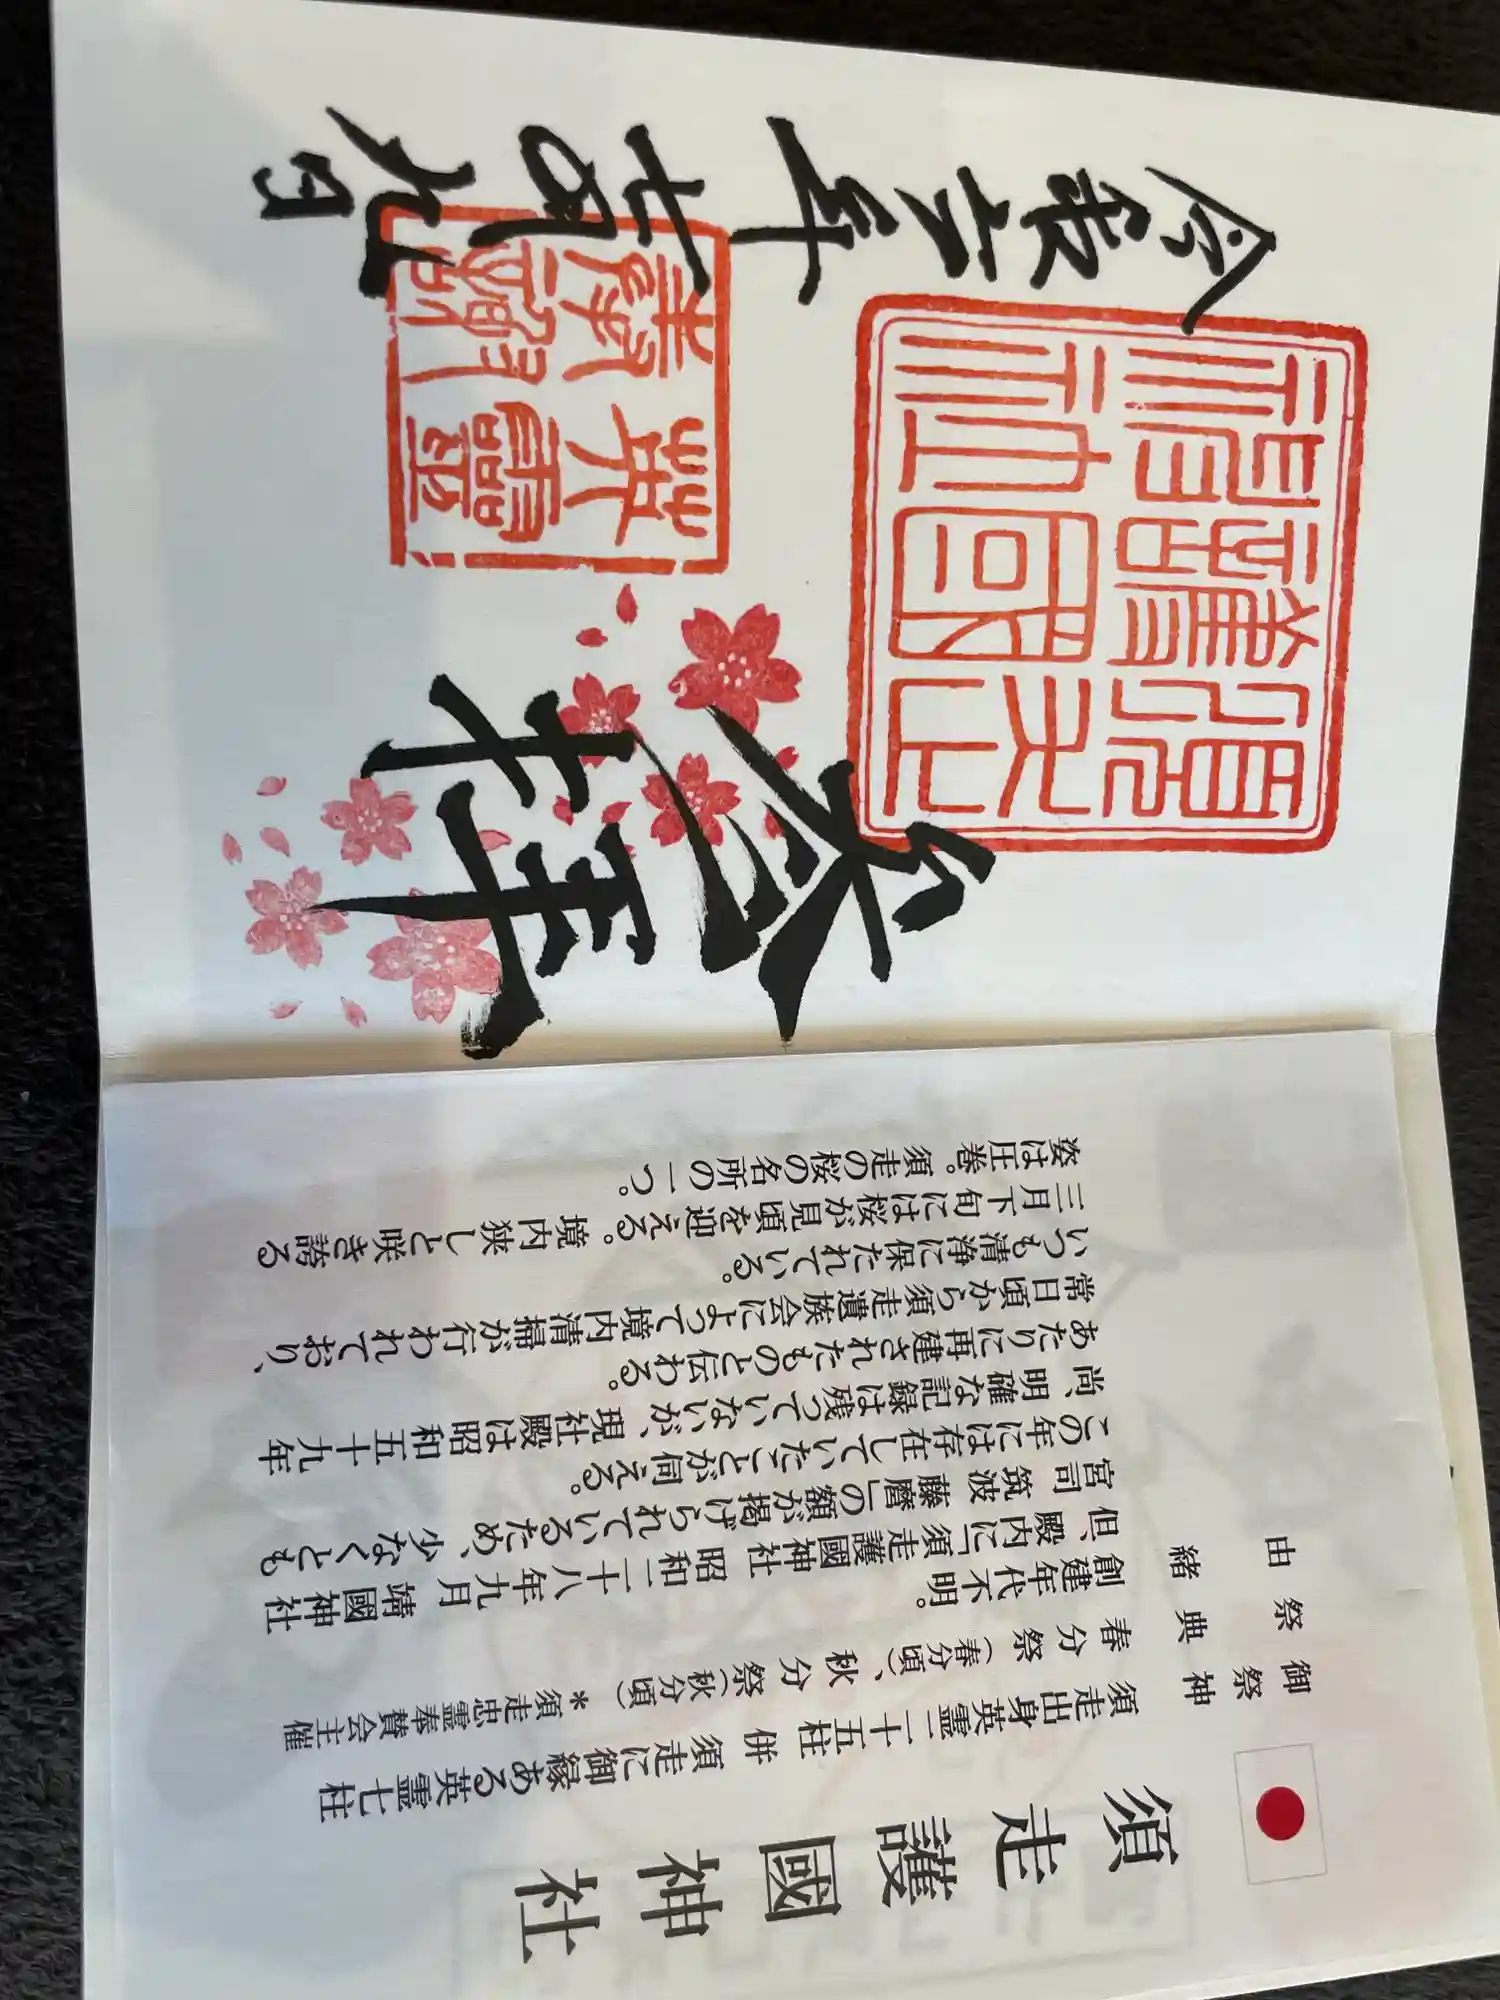 奉拝
須走護國神社
令和六年
七月九日
須走護國神社
御祭神 須走出身英霊二十五柱 併 須走に御縁ある英霊七柱
祭典 春分祭(春分頃)、秋分祭(秋分頃) *須走忠霊奉賛会主催
由緒 創建年代不明。
但、殿内に「須走護國神社 昭和二十八年九月 靖國神社
宮司 筑波 藤麿」の額が掲げられているため、少なくとも
この年には存在していたことが伺える。
尚、明確な記録は残っていないが、現社殿は昭和五十九年
あたりに再建されたものと伝わる。
常日頃から須走遺族会によって境内清掃が行われており、
いつも清浄に保たれている。
三月下旬には桜が見頃を迎える。境内狭しと咲き誇る
姿は圧巻。須走の桜の名所の一つ。